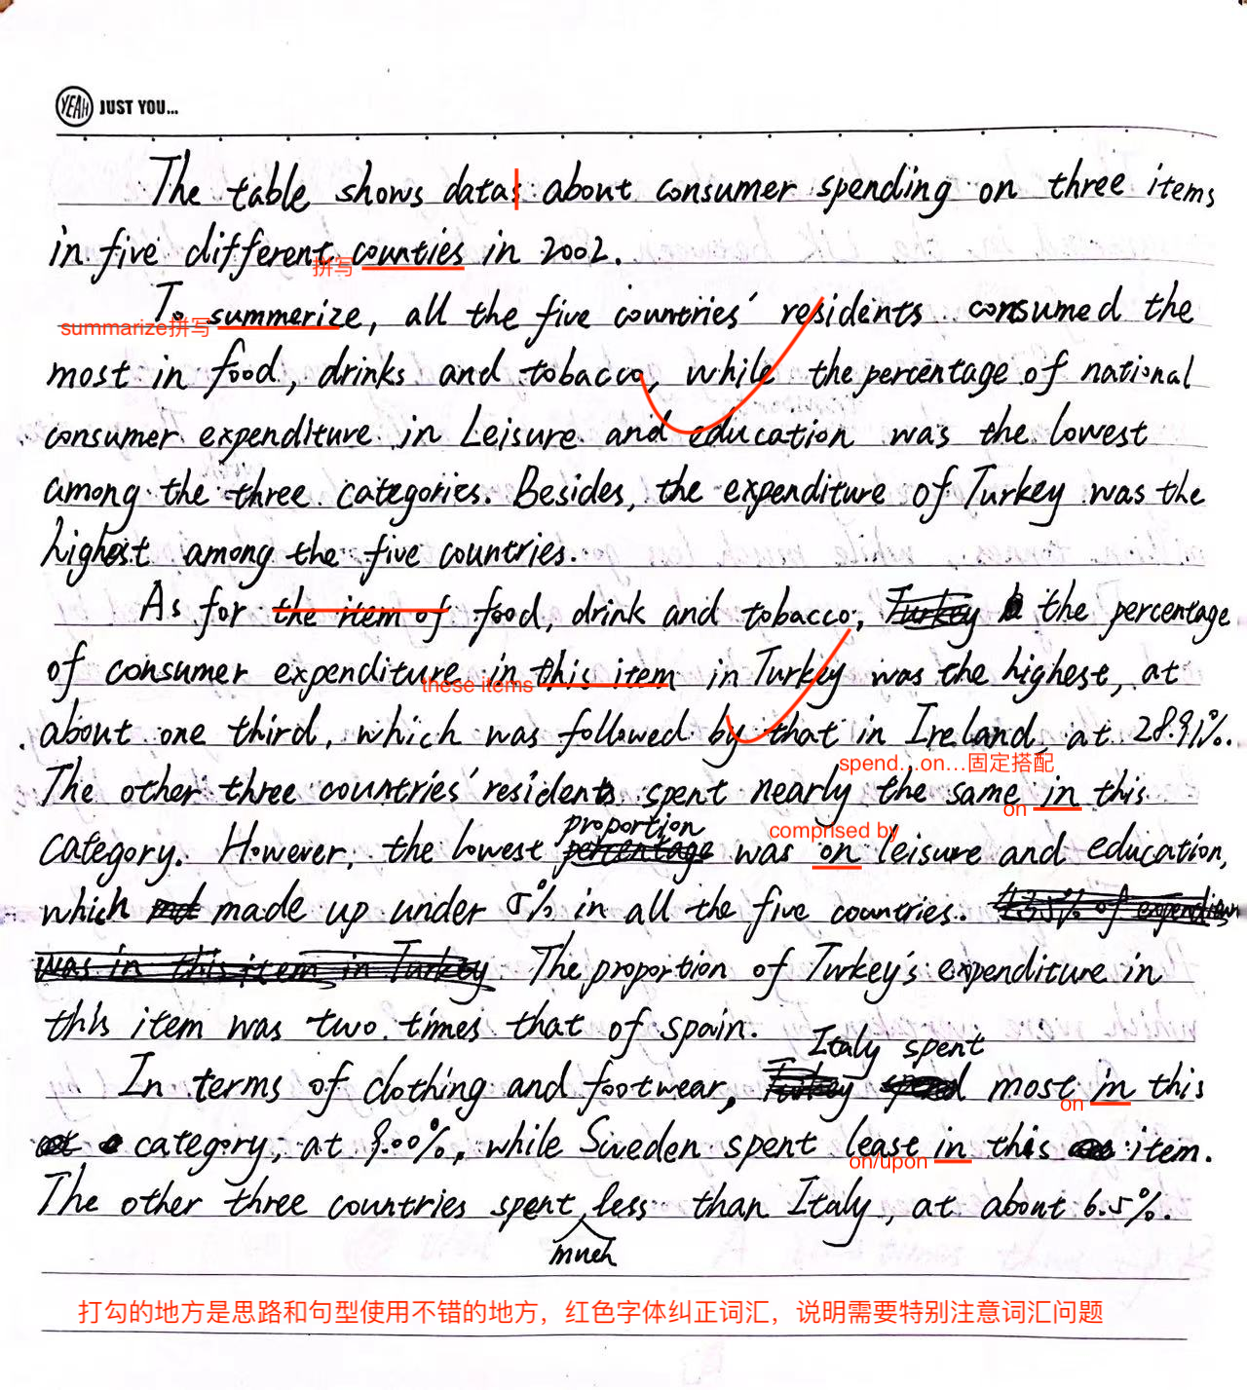 YEAH JUST YOU...
The table shows datas about consumer spending on three items
in five different counties in 2002.
拼写
To summerize, all the five countries' residents consumed the
summarize拼写
most in food, drinks and tobacco, while the percentage of national
consumer expenditure in Leisure and education was the lowest
among the three categories. Besides, the expenditure of Turkey was the
highest among the five countries.
As for the item of food, drink and tobacco, Turkey the percentage
of consumer expenditure in this item in Turkey was the highest, at
these items
about one third, which was followed by that in Ireland, at 28.91%.
spend...on...固定搭配
The other three countries' residents spent nearly the same in this
on
proportion
comprised by
category. However, the lowest percentage was on leisure and education,
which made up under 5% in all the five countries. 4.35% of expenditure
was in this item in Turkey. The proportion of Turkey's expenditure in
this item was two times that of spain.
Italy spent
In terms of clothing and footwear, Turkey spend most in this
on
category, at 9.00%, while Sweden spent least in this item.
on/upon
The other three countries spent less than Italy, at about 6.5%.
much
打勾的地方是思路和句型使用不错的地方，红色字体纠正词汇，说明需要特别注意词汇问题